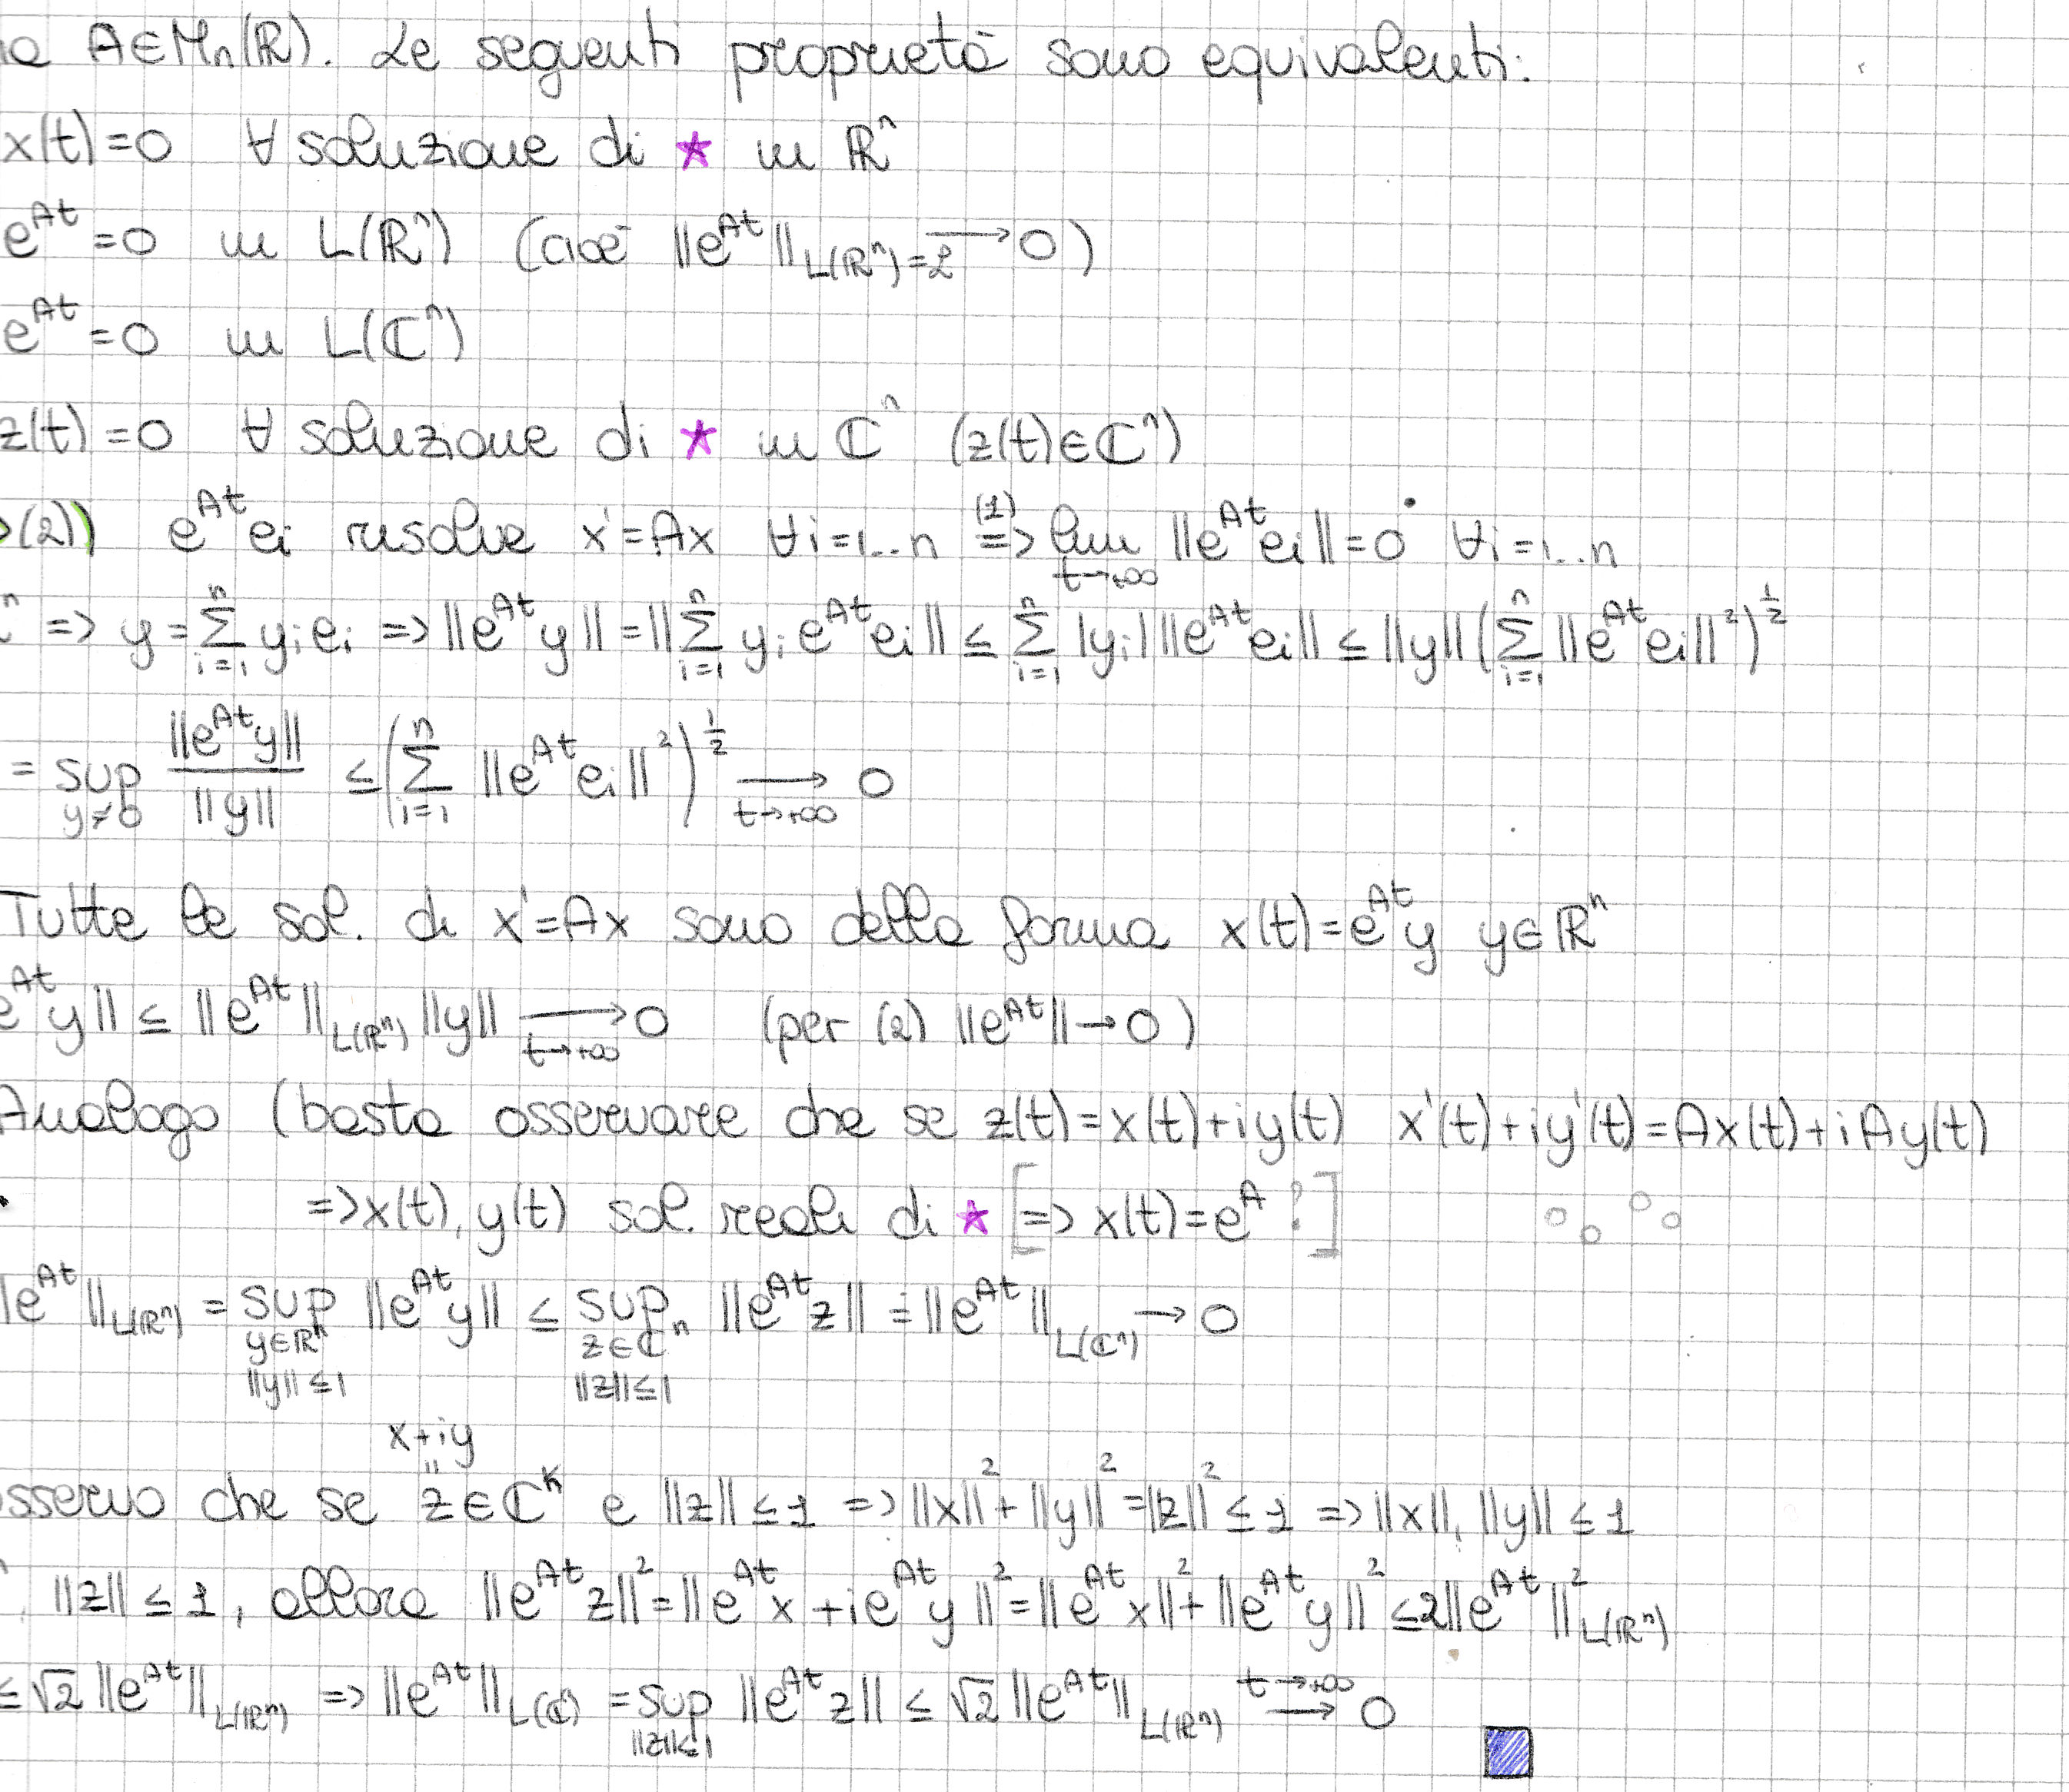 A∈Mn(ℝ). Le seguenti proprietà sono equivalenti:
x(t)=0 ∀ soluzione di ★ in ℝⁿ
e^{At}=0 in L(ℝⁿ) (cioè ||e^{At}||_{L(ℝⁿ)=ℒ} → 0)
e^{At}=0 in L(ℂⁿ)
z(t)=0 ∀ soluzione di ★ in ℂⁿ (z(t)∈ℂⁿ)
(2)) e^{At}ei risolve x'=Ax ∀i=1...n (1)=> lim_{t→+∞} ||e^{At}ei||=0 ∀i=1...n
=> y=∑_{i=1}^{n} yi ei => ||e^{At}y||=||∑_{i=1}^{n} yi e^{At}ei|| ≤ ∑_{i=1}^{n} |yi| ||e^{At}ei|| ≤ ||y|| (∑_{i=1}^{n} ||e^{At}ei||²)^{1/2}
= sup_{y≠0} ||e^{At}y||/||y|| ≤ (∑_{i=1}^{n} ||e^{At}ei||²)^{1/2} →_{t→+∞} 0
Tutte le sol. di x'=Ax sono della forma x(t)=e^{At}y y∈ℝⁿ
e^{At}y|| ≤ ||e^{At}||_{L(ℝⁿ)} ||y|| →_{t→+∞} 0 (per (2) ||e^{At}||→0)
Analogo (basta osservare che se z(t)=x(t)+iy(t) x'(t)+iy'(t)=Ax(t)+iAy(t)
=> x(t), y(t) sol. reali di ★ [=> x(t)=e^{A} ?]
|e^{At}||_{L(ℝⁿ)} = sup_{y∈ℝⁿ ||y||≤1} ||e^{At}y|| ≤ sup_{z∈ℂⁿ ||z||≤1} ||e^{At}z|| = ||e^{At}||_{L(ℂⁿ)} → 0
x+iy
"
sservo che se z∈ℂⁿ e ||z||≤1 => ||x||²+||y||²=||z||²≤1 => ||x||, ||y||≤1
, ||z||≤1, allora ||e^{At}z||²=||e^{At}x+ie^{At}y||²=||e^{At}x||²+||e^{At}y||²≤2||e^{At}||²_{L(ℝⁿ)}
≤√2 ||e^{At}||_{L(ℝⁿ)} => ||e^{At}||_{L(ℂⁿ)} = sup_{||z||≤1} ||e^{At}z|| ≤ √2 ||e^{At}||_{L(ℝⁿ)} →^{t→+∞} 0